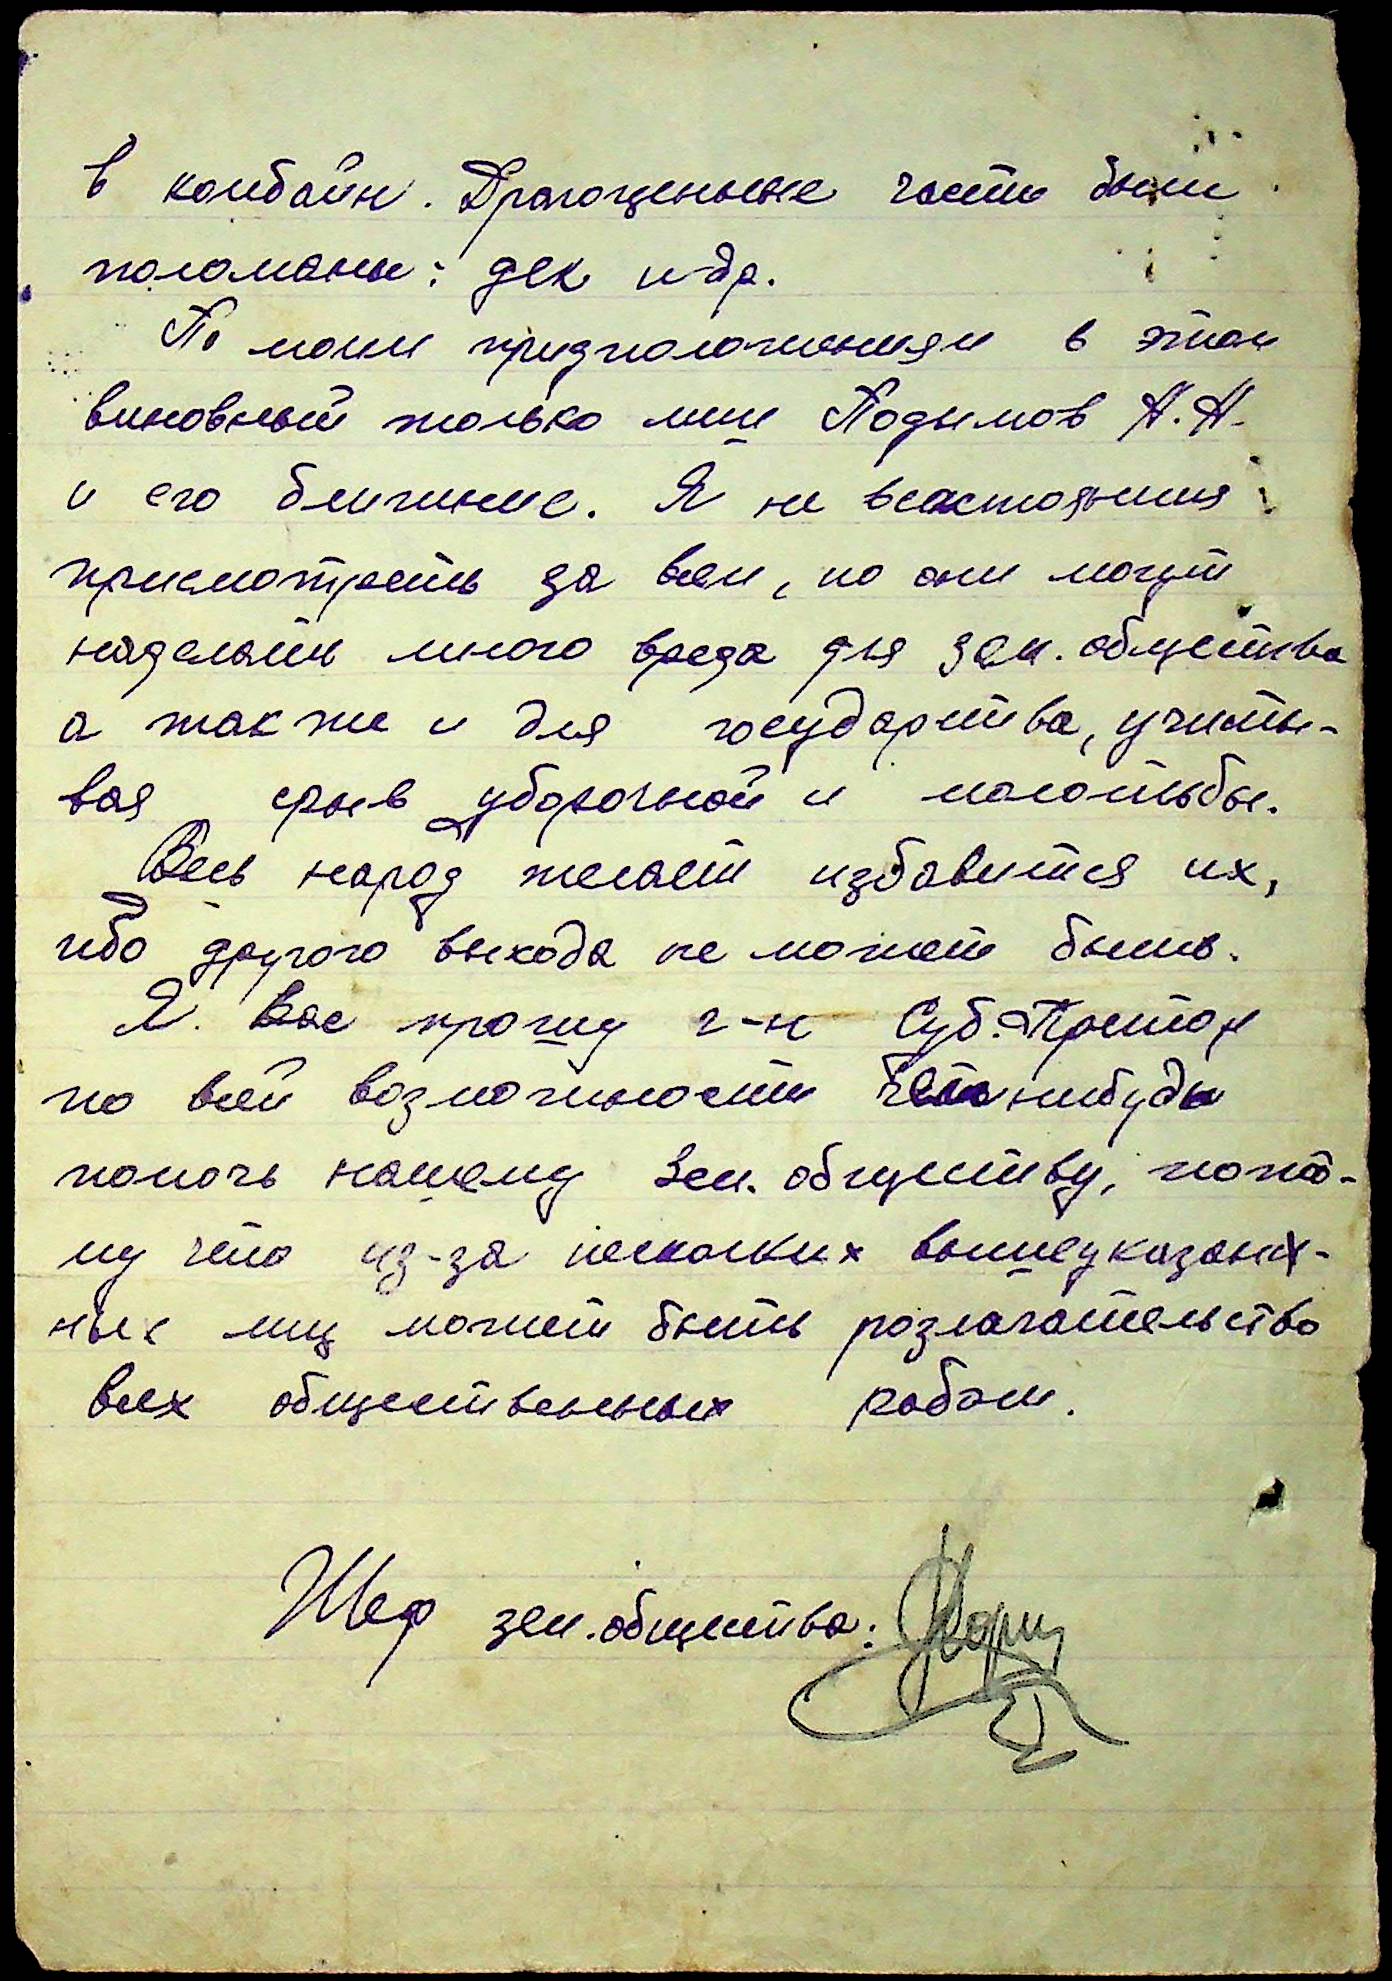 в комбайн. Драгоценные части были
поломаны: дек и др.
По моим придположениям в этом
виновный только лиш Подымов Н. Н.
и его ближние. Я не всастоянния
присмотреть за всем, но они могут
наделать много вреда для зем. общества
а так же и для государства, учиты-
вая срыв уборочной и молотьбы.
Весь народ желает избавится их,
ибо другого выхода не может быть.
Я Вас прошу г-н Суб.-Претор
по всей возможности чем нибудь
помочь нашему Зем. обществу, пото-
му что из-за несколких вышеуказан-
ных лиц может быть розлагательство
всех общественных работ.
Шеф зем. общества: